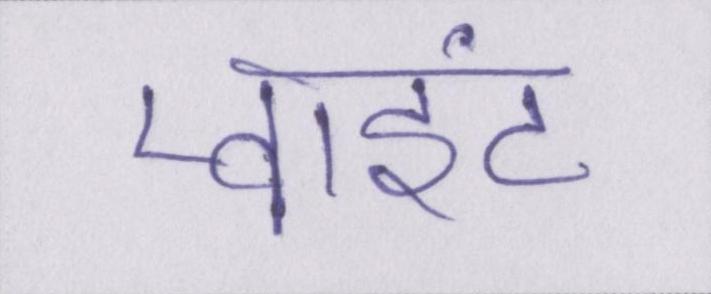 प्वाइंट